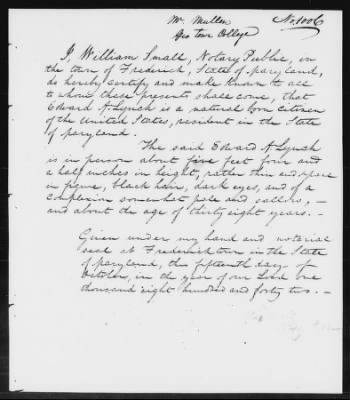 Mr. Mullen
Geo Town College
No. 1006
I, William Small, Notary Public, in
the town of Frederick, State of Maryland,
do hereby certify and make known to all
to whom these presents shall come, that
Edward A Lynch is a natural born citizen
of the United States, resident in the State
of Maryland.
The said Edward A Lynch
is in person about five feet four and
a half inches in height, rather thin and spare
in figure, black hair, dark eyes, and of a
complexion somewhat pale and sallow, —
and about the age of thirty eight years. —
Given under my hand and notarial
seal at Frederick town in the State
of Maryland, this fifteenth day of
October, in the year of our Lord one
thousand eight hundred and forty two. —